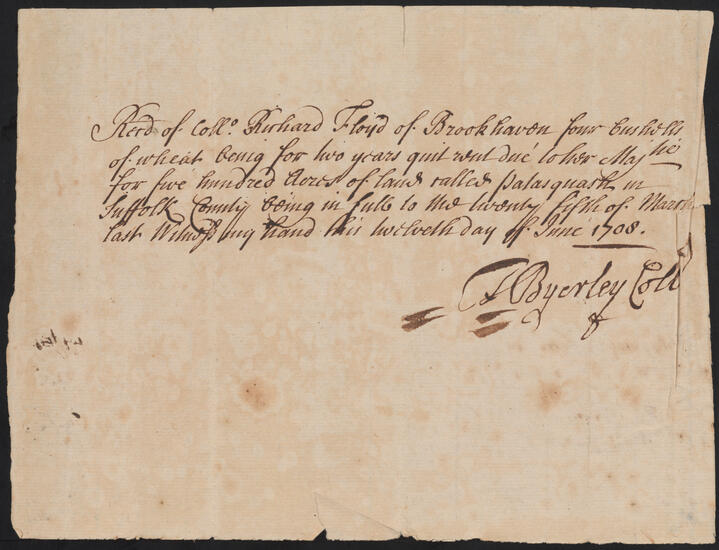 Recd of Collo. Richard Floyd of Brookhaven four bushells
of wheat being for two years quit rent due to her Majties
for five hundred Acres of land called Patasquash in
Suffolk County being in full to the twenty fifth of March
last Witness my hand this twelveth day of June 1708.
T Byerley Coll